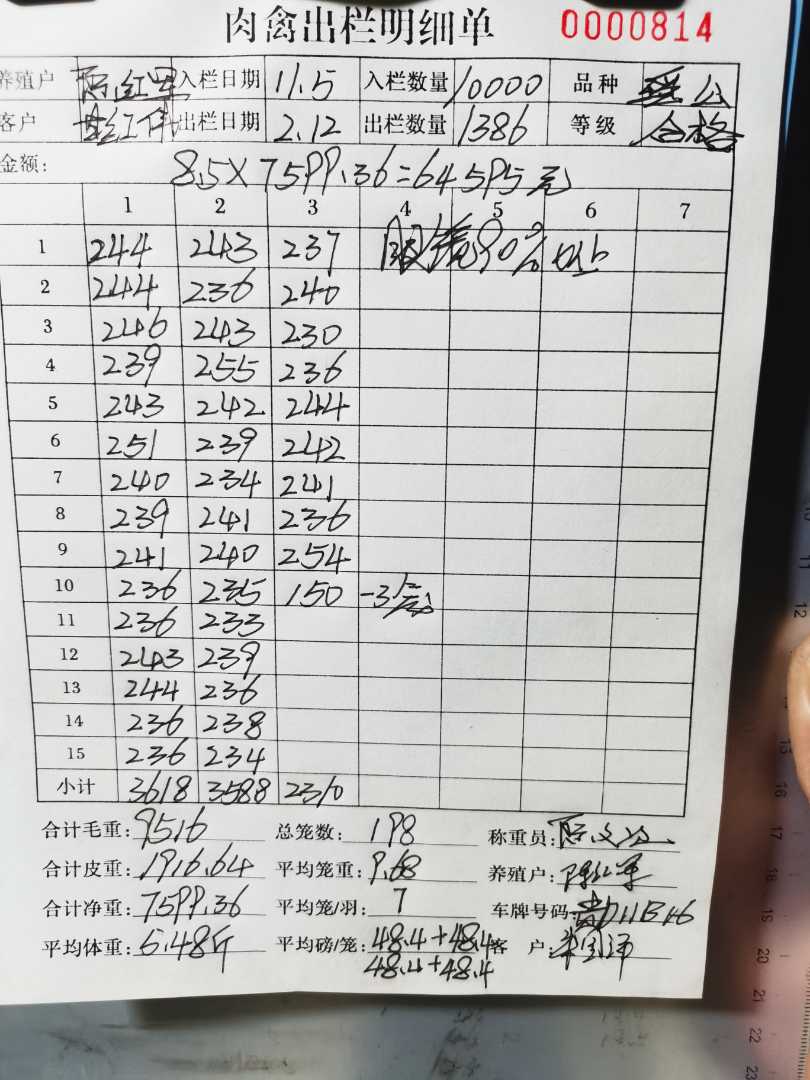 肉禽出栏明细单 0000814
养殖户 入栏日期 11.5 入栏数量 10000 品种
客户 出栏日期 2.12 出栏数量 1386 等级 合格
金额: 8.5×7599.36=64595元
1 2 3 4 5 6 7
1 244 243 237 90%以上
2 244 236 240
3 246 243 230
4 239 255 236
5 243 242 244
6 251 239 242
7 240 234 241
8 239 241 236
9 241 240 254
10 236 235 150 -3
11 236 233
12 243 239
13 244 236
14 236 238
15 236 234
小计 3618 3588 2310
合计毛重: 9516 总笼数: 198 称重员:
合计皮重: 1916.64 平均笼重: 9.68 养殖户: 陈红军
合计净重: 7599.36 平均笼/羽: 7 车牌号码:
平均体重: 5.48斤 平均磅/笼: 48.4+48.4 客 户:
48.4+48.4